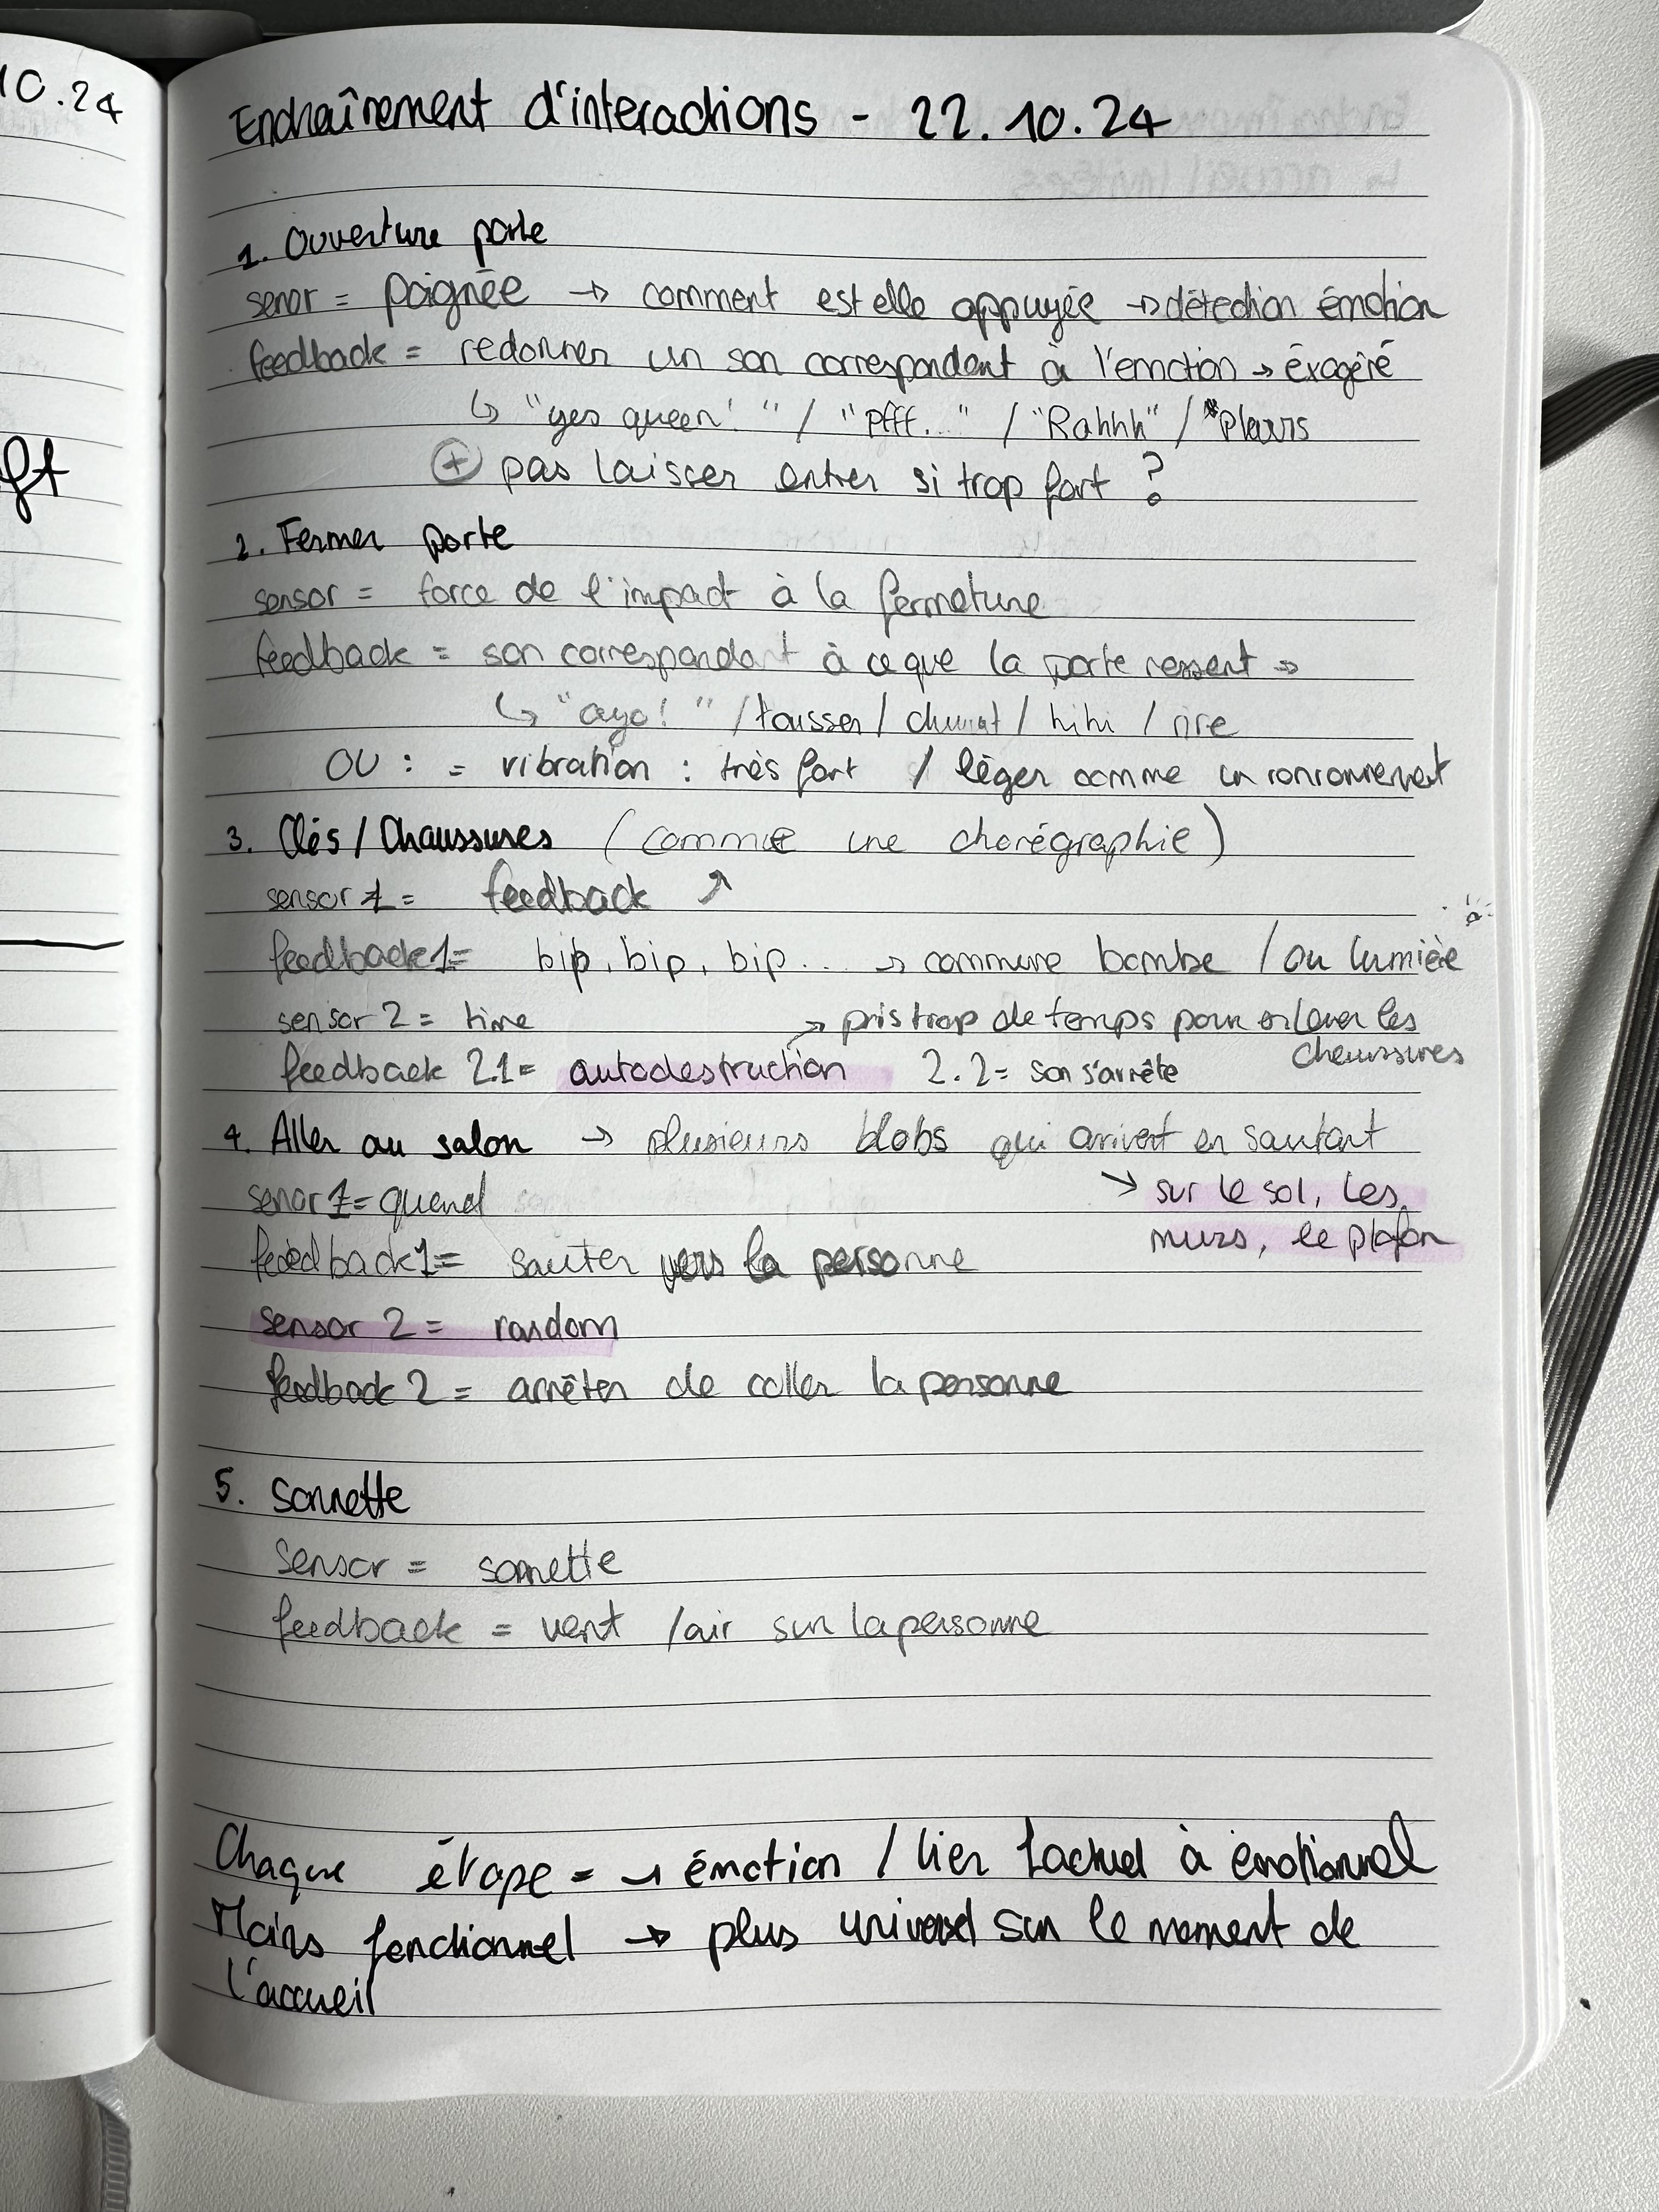 10.24
ft
Enchaînement d'interactions - 22.10.24
1. Ouverture porte
senor = poignée → comment est elle appuyée → détection émotion
feedback = redonner un son correspondant à l'emotion → éxagéré
↳ "yes queen! " / "Pfff..." / "Rahhh" / Pleurs
⊕ pas laisser entrer si trop fort ?
2. Fermer porte
sensor = force de l'impact à la fermeture
feedback = son correspondant à ce que la porte ressent →
↳ "aya! " / tousser / / hihi / rire
OU : = vibration : très fort / léger comme un ronronnement
3. Clés / Chaussures (comme une chorégraphie)
sensor 1 = feedback ↗
feedback 1 = bip, bip, bip... → comme bombe / ou lumière
sensor 2 = time → pris trop de temps pour enlever les chaussures
feedback 2.1 = autodestruction 2.2 = son s'arrête
4. Aller au salon → plusieurs blobs qui arrivent en sautant
→ sur le sol, les
murs, le plafon
senor 1 = quand
feedback 1 = sauter vers la personne
sensor 2 = random
feedback 2 = arrêter de coller la personne
5. Sonnette
Sensor = sonnette
feedback = vent / air sur la personne
Chaque étape = → émotion / lier factuel à émotionnel
Moins fonctionnel → plus universel sur le moment de
l'accueil